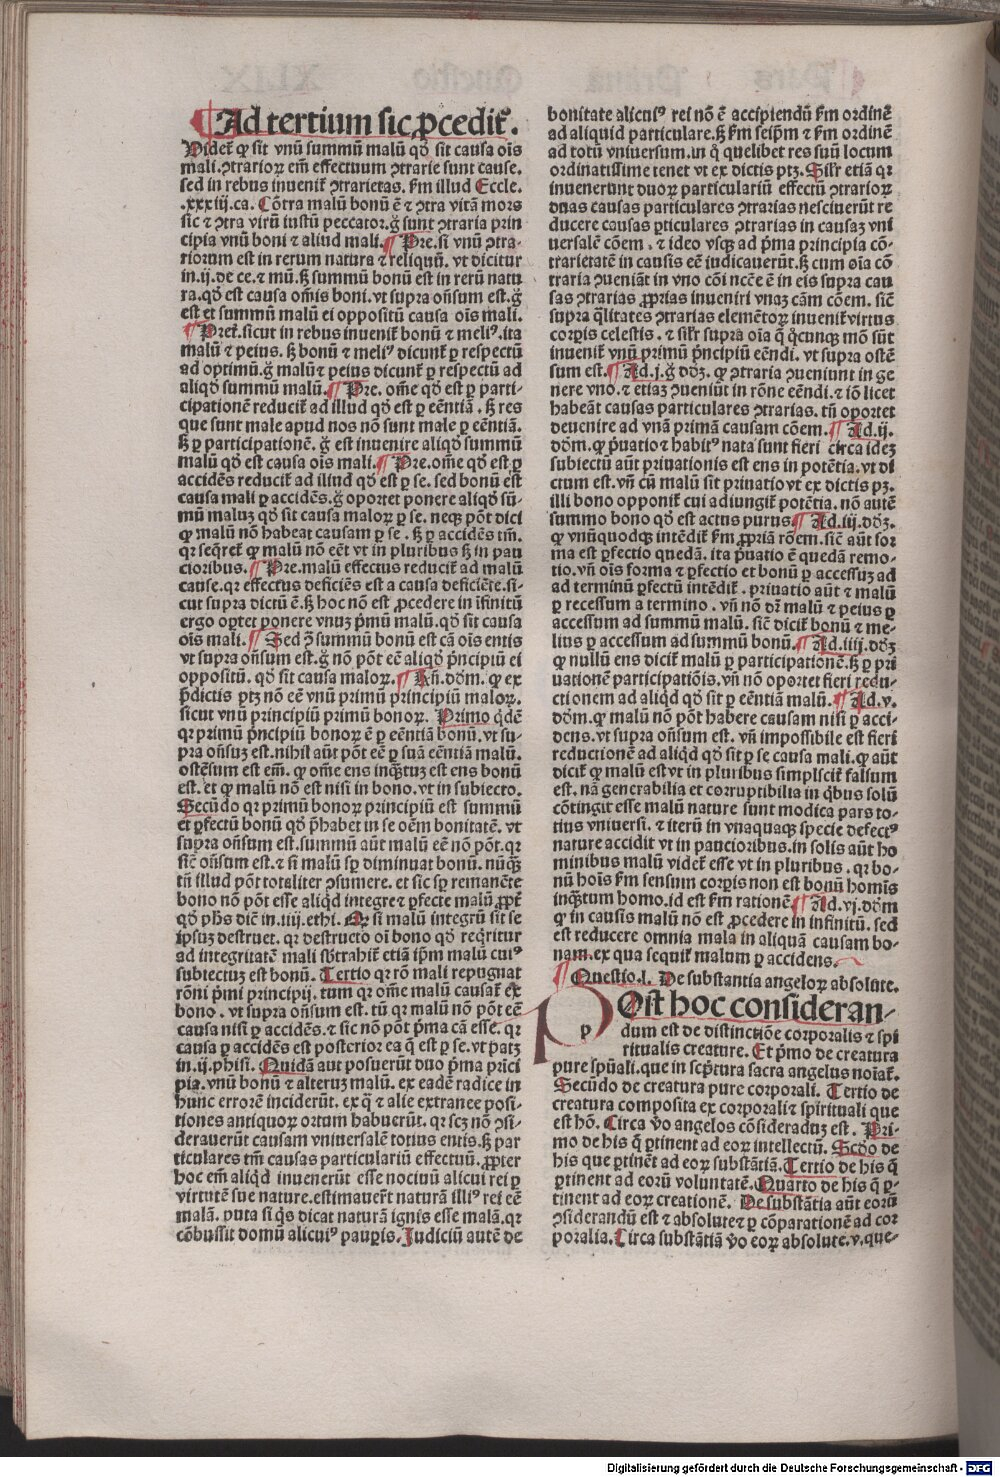 ¶ Ad tertium sic ꝓcediť.
Videť ꝙ sit vnū summū malū qđ sit causa oīs
mali. ꝯtrarioꝝ em̄ effectuum ꝯtrarie sunt cause.
sed in rebus inueniť ꝯtrarietas. ẜm illud Eccle.
.xxxiij.ca. Cōtra malū bonū ē ⁊ ꝯtra vitā mors
sic ⁊ ꝯtra virū iustū peccator. ḡ sunt ꝯtraria prin
cipia vnū boni ⁊ aliud mali. ¶ Pre. si vnū ꝯtra-
riorum est in rerum natura ⁊ reliquū. vt dicitur
in .ij. de ce. ⁊ mū. ꝣ summū bonū est in rerū natu
ra. qđ est causa om̄is boni. vt supra on̄sum est. ḡ
est et summū malū ei oppositū causa oīs mali.
¶ Preť. sicut in rebus inueniť bonū ⁊ meliꝰ. ita
malū ⁊ peius. ꝣ bonū ⁊ meliꝰ dicunť ꝑ respectū
ad optimū. ḡ malū ⁊ peius dicunť ꝑ respectū ad
aliqđ summū malū. ¶ Pre. om̄e qđ est ꝑ parti-
cipationē reduciť ad illud qđ est ꝑ eēntiā. ꝣ res
que sunt male aptud nos nō sunt male ꝑ eēntiā.
ꝣ ꝑ participationē. ḡ est inuenire aliqđ summū
malū qđ est causa oīs mali. ¶ Pre. om̄e qđ est ꝑ
accidēs reduciť ad illud qđ est ꝑ se. sed bonū est
causa mali ꝑ accidēs. ḡ oportet ponere aliqđ sū-
mū maluꝫ qđ sit causa maloꝝ ꝑ se. neqꝫ pōt dici
ꝙ malū nō habeat causam ꝑ se. ꝣ ꝑ accidēs tm̄.
qꝛ seq̄reť ꝙ malū nō eēt vt in pluribus ꝣ in pau
cioribus. ¶ Pre. malū effectus reduciť ad malū
cause. qꝛ effectus deficiēs est a causa deficiēte. si-
cut supra dictū ē. ꝣ hoc nō est ꝓcedere in īfinitū
ergo oꝑtet ponere vnuꝫ p̄mū malū. qđ sit causa
oīs mali. ¶ Sed ꝯ̄ summū bonū est cā oīs entis
vt supra on̄sum est. ḡ nō pōt eē aliqđ p̄ncipiū ei
oppositū. qđ sit causa maloꝝ. ¶ Rn̄. dōm. ꝙ ex
p̄dictis ptꝫ nō eē vnū primū principiū maloꝝ.
sicut vnū principiū primū bonoꝝ. Primo q̇dē
qꝛ primū p̄ncipiū bonoꝝ ē ꝑ eēntiā bonū. vt su-
pra on̄suꝫ est. nihil aūt pōt eē ꝑ suā eēntiā malū.
ostēsum est em̄. ꝙ om̄e ens inq̄ꝫtuꝫ est ens bonū
est. et ꝙ malū nō est nisi in bono. vt in subiecto.
Secūdo qꝛ primū bonoꝝ principiū est summū
et ꝑfectū bonū qđ p̄habet in se oēm bonitatē. vt
supra on̄sum est. summū aūt malū eē nō pōt. qꝛ
sic̄ on̄sum est. ⁊ si malū sꝑ diminuat bonū. nūq̄ꝫ
tn̄ illud pōt totaliter ꝯsumere. et sic sꝑ remanēte
bono nō pōt esse aliqđ integre ⁊ ꝑfecte malū. ꝓpť
qđ ph̄s dic̄ in .iiij. ethi. Qꝛ si malū integrū sit se
ipsuꝫ destruet. qꝛ destructo oī bono qđ req̇ritur
ad integritatē mali sb̄trahiť etiā ip̄m malū cuiꝰ
subiectuꝫ est bonū. Tertio qꝛ rō mali repugnat
rōni p̄mi principij. tum qꝛ om̄e malū causať ex
bono. vt supra on̄sum est. tū qꝛ malū nō pōt eē
causa nisi ꝑ accidēs. ⁊ sic nō pōt p̄ma cā esse. qꝛ
causa ꝑ accidēs est posterior ea q̄ est ꝑ se. vt patꝫ
in .ij. phisi. Quidā aut posuerūt duo p̄ma prīci
pia. vnū bonū ⁊ alteruꝫ malū. ex eadē radice in
hunc errorē inciderūt. ex q̄ ⁊ alie extranee posi-
tiones antiquoꝝ ortum habuerūt. qꝛ scꝫ nō ꝯsi-
derauerūt causam vniuersalē totius entis. ꝣ par
ticulares tm̄ causas particulariū effectuū. ꝓpter
hoc em̄ aliqđ inuenerūt esse nociuū alicui rei ꝑ
virtutē sue nature. estimauerūt naturā illiꝰ rei eē
malā. puta si q̇s dicat naturā ignis esse malā. qꝛ
cōbussit domū alicuiꝰ pauꝑis. Judiciū autē de
bonitate alicuiꝰ rei nō ē accipiendū ẜm ordinē
ad aliquid particulare. ꝣ ẜm seip̄m ⁊ ẜm ordinē
ad totū vniuersum. in q̇ quelibet res suū locum
ordinatissime tenet vt ex dictis ptꝫ. Silr̄ etiā qꝛ
inuenerunt duoꝝ particulariū effectū ꝯtrarioꝝ
duas causas particulares ꝯtrarias nesciuerūt re
ducere causas ꝑticulares ꝯtrarias in causaꝫ vni
uersalē cōem. ⁊ ideo vsqꝫ ad p̄ma principia cō-
trarietatē in causis eē iudicauerūt. ꝣ cum oīa cō
traria ꝯueniāt in vno cōi ncc̄e ē in eis supra cau
sas ꝯtrarias ꝓprias inueniri vnaꝫ cām cōem. sic̄
supra q̄litates ꝯtrarias elemētoꝝ inueniť virtus
corꝑis celestis. ⁊ silr̄ supra oīa q̄ q̇cunqꝫ mō sūt
inueniť vnū primū p̄ncipiū eēndi. vt supra ostē
sum est. ¶ Ad .j. ḡ dōꝫ. ꝙ ꝯtraria ꝯueniunt in ge
nere vno. ⁊ etiaꝫ ꝯueniūt in rōne eēndi. ⁊ iō licet
habeāt causas particulares ꝯtrarias. tn̄ oportet
deuenire ad vnā primā causam cōem. ¶ Ad .ij.
dōm. ꝙ p̄uatio ⁊ habitꝰ nata sunt fieri circa ideꝫ
subiectū aūt priuationis est ens in potētia. vt di
ctum est. vn̄ cū malū sit priuatio vt ex dictis pꝫ.
illi bono opponiť cui adiungiť potētia. nō autē
summo bono qđ est actus purus. ¶ Ad .iij. dōꝫ.
ꝙ vnūquodqꝫ intēdiť ẜm ꝓpriā rōem. sic̄ aūt for
ma est ꝑfectio quedā. ita p̄uatio ē quedā remo-
tio. vn̄ oīs forma ⁊ ꝑfectio et bonū ꝑ accessuꝫ ad
ad terminū ꝑfectū intēdiť. priuatio aūt ⁊ malū
ꝑ recessum a termino. vn̄ nō dr̄ malū ⁊ peius ꝑ
accessum ad summū malū. sic̄ diciť bonū ⁊ me-
lius ꝑ accessum ad summū bonū. ¶ Ad .iiij. dōꝫ
ꝙ nullū ens diciť malū ꝑ participationē. ꝣ ꝑ pri
uationē participatiōis. vn̄ nō oportet fieri redu-
ctionem ad aliqđ qđ sit ꝑ eēntiā malū. ¶ Ad .v.
dōm. ꝙ malū nō pōt habere causam nisi ꝑ acci-
dens. vt supra on̄sum est. vn̄ impossibile est fieri
reductionē ad aliqđ qđ sit ꝑ se causa mali. ꝙ aūt
diciť ꝙ malū est vt in pluribus simplsciť falsum
est. nā generabilia et corruptibilia in q̇bus solū
cōtingit esse malū nature sunt modica pars to-
tius vniuersi. ⁊ iterū in vnaquaqꝫ specie defectꝰ
nature accidit vt in paucioribus. in solis aūt ho
minibus malū videť esse vt in pluribus. qꝛ bo-
nū hoīs ẜm sensum corꝑis non est bonū homīs
inq̄ꝫtum homo. id est ẜm rationē. ¶ Ad .vj. dōm
ꝙ in causis malū nō est ꝓcedere in infinitū. sed
est reducere omnia mala in aliquā causam bo-
nam. ex qua sequiť malum ꝑ accidens.
¶ Questio .l. De substantia angeloꝝ absolute.
POst hoc consideran-
dum est de distinctiōe corporalis ⁊ spi
ritualis creature. Et p̄mo de creatura
pure spūali. que in scp̄tura sacra angelus noīať.
Secūdo de creatura pure corporali. Tertio de
creatura composita ex corporali ⁊ spirituali que
est hō. Circa v̄o angelos cōsideraduꝫ est. Pri-
mo de his q̄ ꝑtinent ad eoꝝ intellectū. Scd̄o de
his que ꝑtinēt ad eoꝝ substātiā. Tertio de his q̄
ꝑtinent ad eorū voluntatē. Quarto de his q̄ ꝑ-
tinent ad eoꝝ creationē. De substātia aūt eorū
ꝯsiderandū est ⁊ absolute ⁊ ꝑ cōparationē ad cor
poralia. Circa substātiā v̄o eoꝝ absolute .v. que-
Digitalisierung gefördert durch die Deutsche Forschungsgemeinschaft - DFG